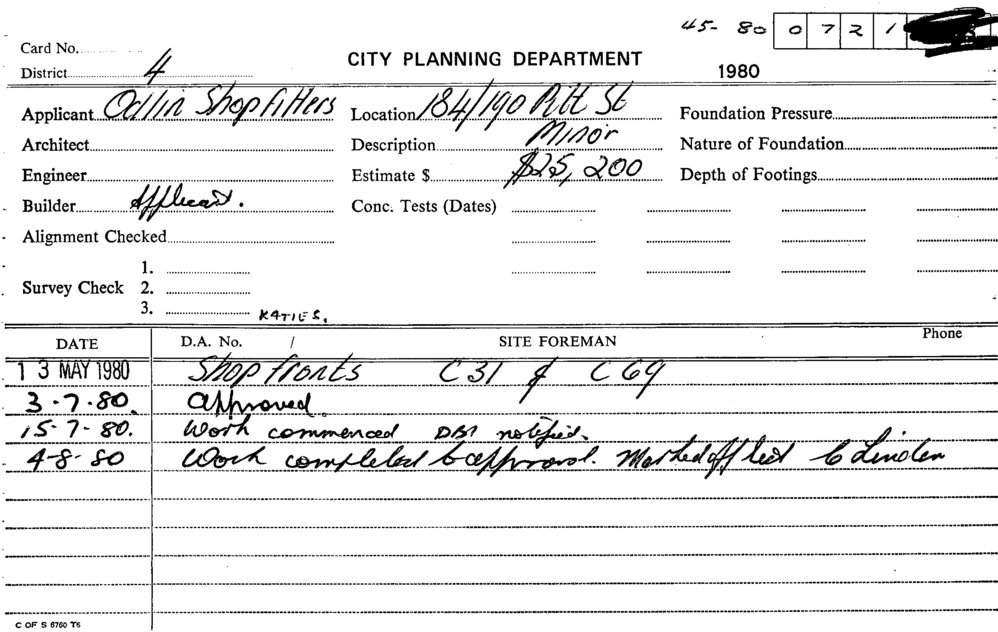 45- 80 0 7 2 1
Card No.
District 4
CITY PLANNING DEPARTMENT
1980
Applicant Odlin Shopfitters Location 184/190 Pitt St Foundation Pressure
Architect Description Minor Nature of Foundation
Engineer Estimate $ $25,200 Depth of Footings
Builder Applicant. Conc. Tests (Dates)
Alignment Checked
1.
Survey Check 2.
3. KATIES.
DATE D.A. No. / SITE FOREMAN Phone
13 MAY 1980 Shop fronts C31 & C69
3-7-80. Approved.
15-7-80. Work commenced DBI notified.
4-8-80 Work completed to approval. Marked off list C Linden
C OF S 6760 T6